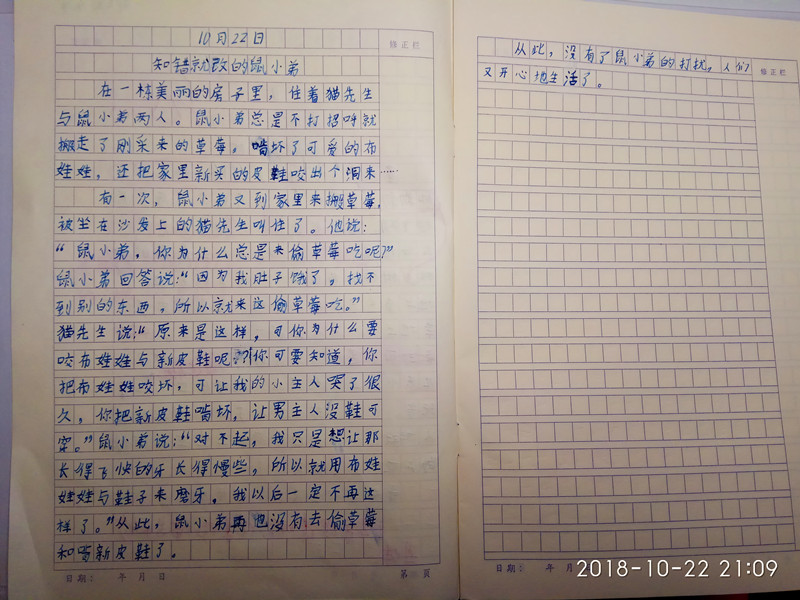 10月22日
修正栏
知错就改的鼠小弟
在一栋美丽的房子里，住着猫先生
与鼠小弟两人。鼠小弟总是不打招呼就
搬走了刚采来的草莓，啃坏了可爱的布
娃娃，还把家里新买的皮鞋咬出个洞来……
有一次，鼠小弟又到家里来搬草莓，
被坐在沙发上的猫先生叫住了。他说：
“鼠小弟，你为什么总是来偷草莓吃呢？”
鼠小弟回答说：“因为我肚子饿了，找不
到别的东西，所以就来这偷草莓吃。”
猫先生说：“原来是这样，可你为什么要
咬布娃娃与新皮鞋呢？！你可要知道，你
把布娃娃咬坏，可让我的小主人哭了很
久，你把新皮鞋啃坏，让男主人没鞋可
穿。”鼠小弟说：“对不起，我只是想让那
长得飞快的牙长得慢些，所以就用布娃
娃娃与鞋子来磨牙，我以后一定不再这
样了。”从此，鼠小弟再也没有去偷草莓
和啃新皮鞋了。
日期： 年 月 日
第 页
从此，没有了鼠小弟的打扰，人们
又开心地生活了。
修正栏
日期： 年 月
2018-10-22 21:09